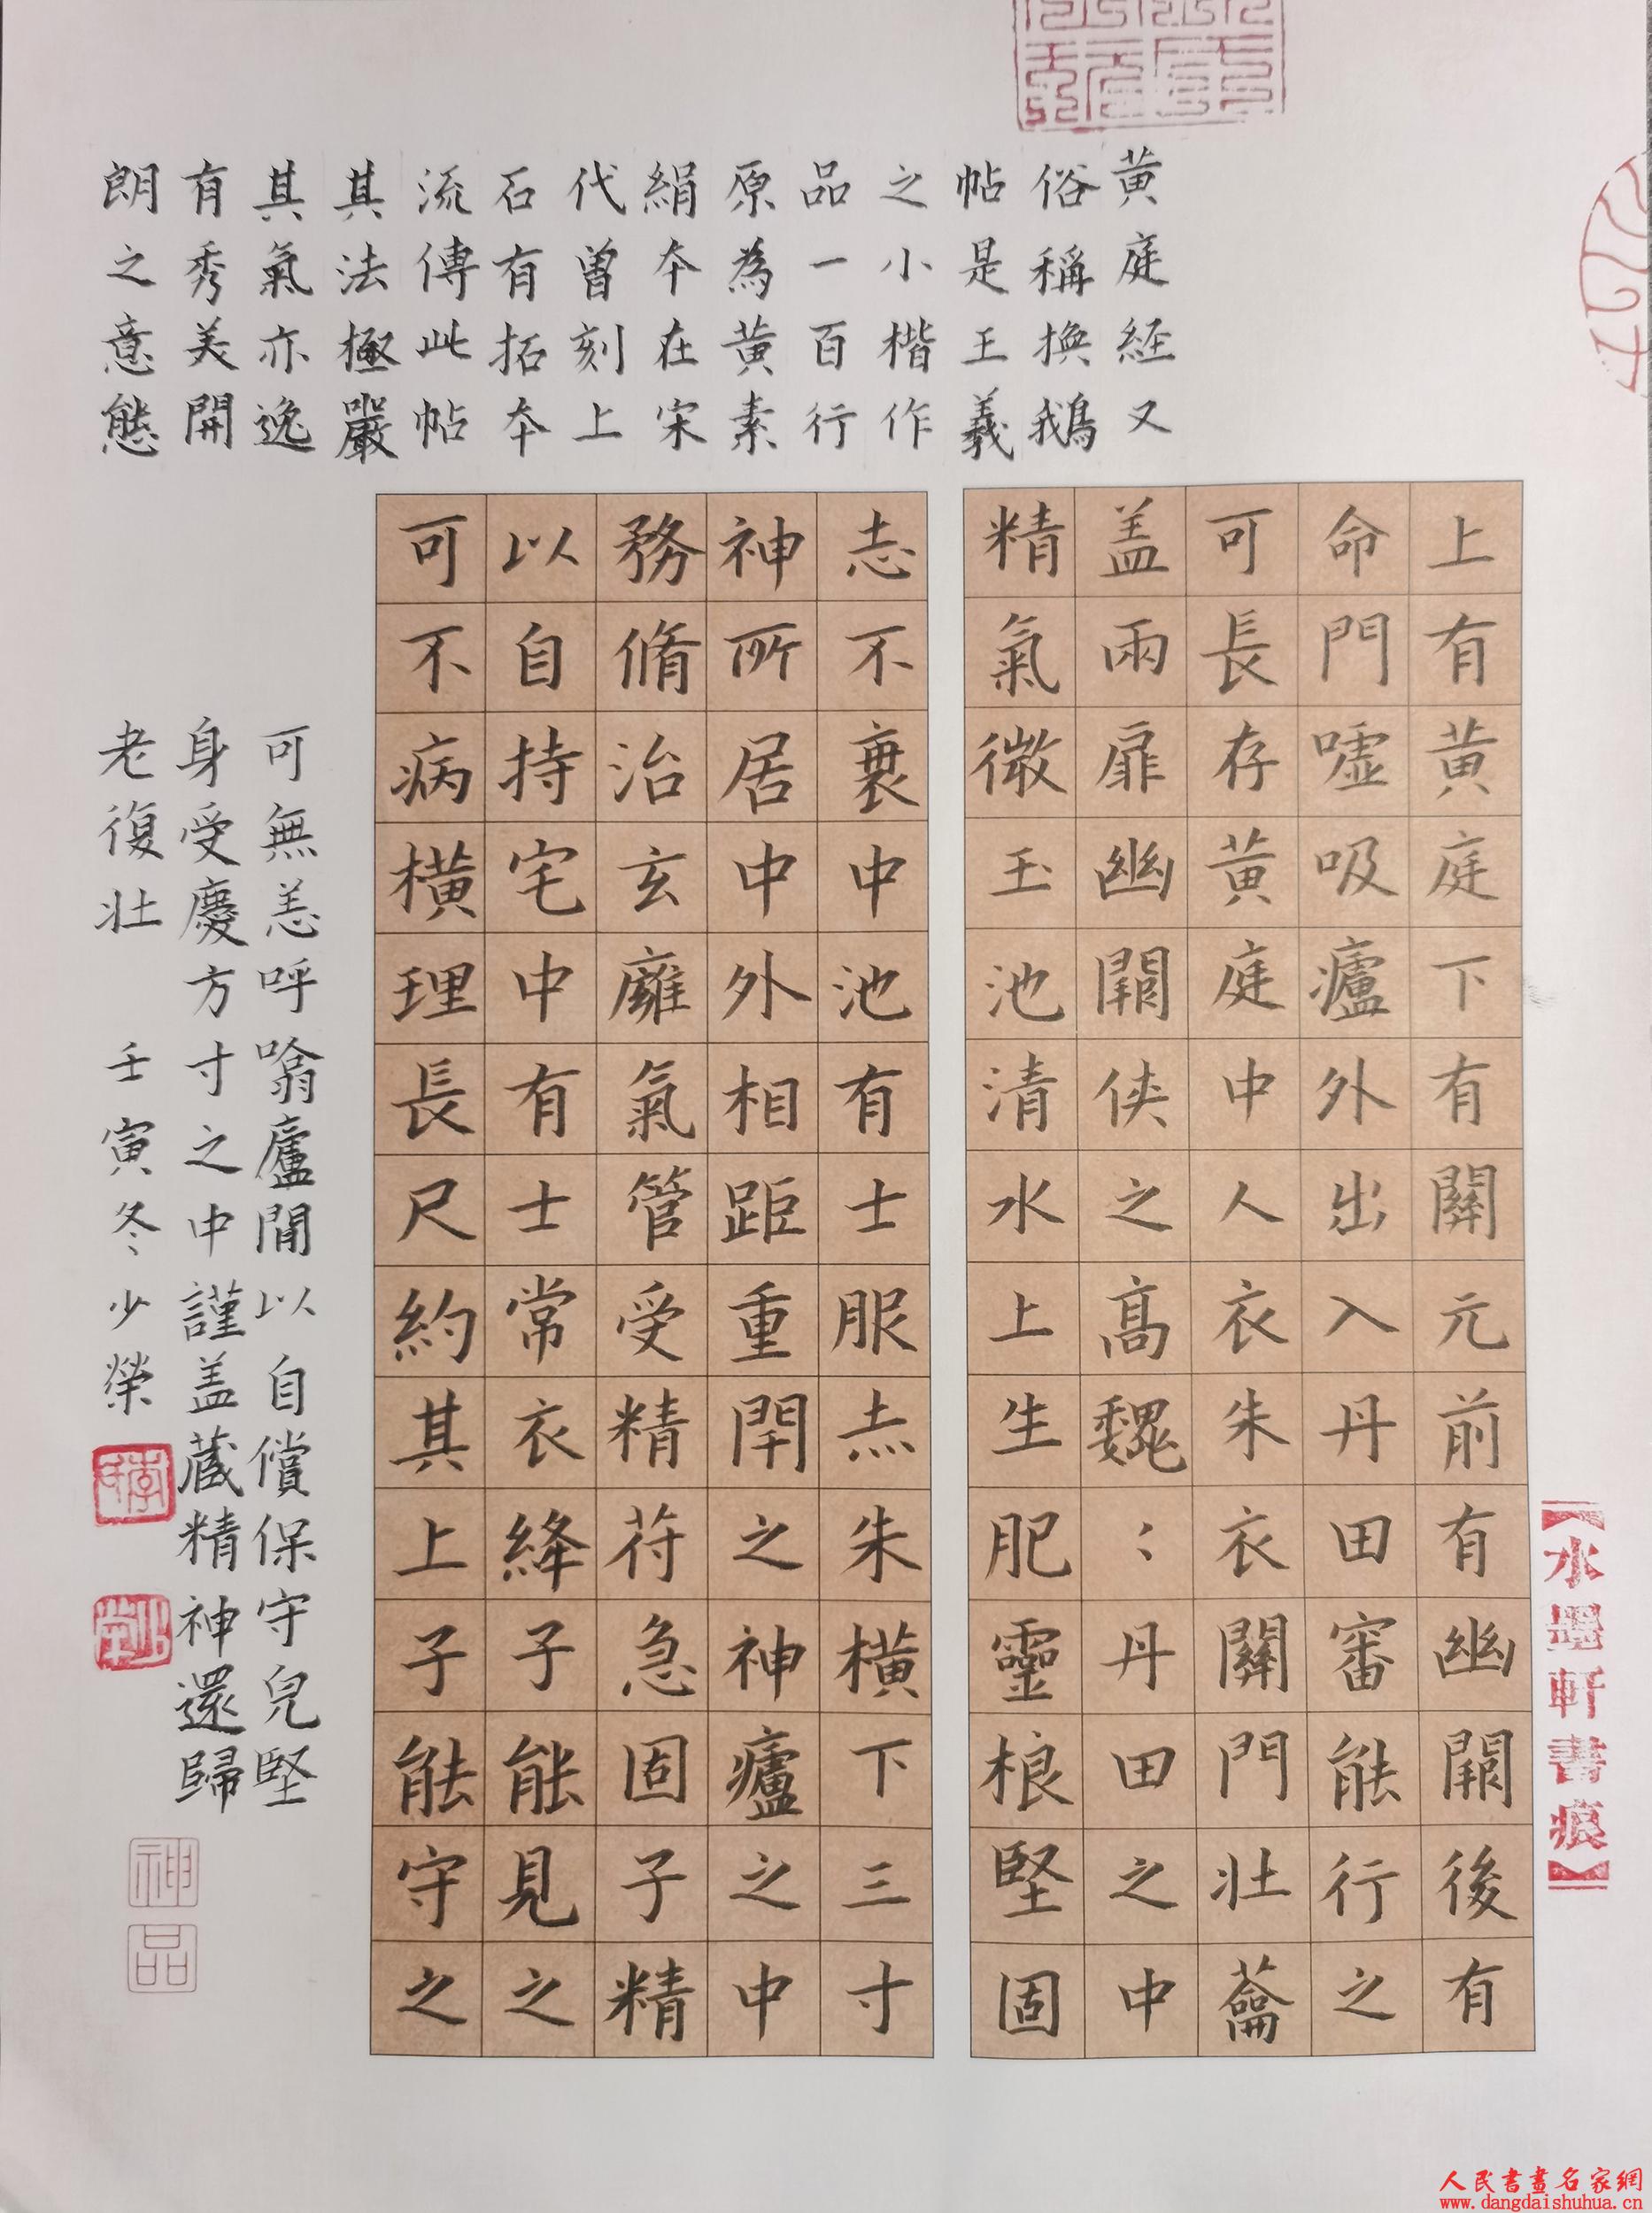 黄庭経又
俗稱換鵝
帖是王羲
之小楷作
品一百行
原為黄素
絹本在宋
代曾刻上
石有拓本
流傳此帖
其法極嚴
其氣亦逸
有秀美開
朗之意態
上有黄庭下有關元前有幽闕後有
命門嘘吸廬外出入丹田審能行之
可長存黄庭中人衣朱衣關門壯蘥
盖兩扉幽闕俠之高魏〻丹田之中
精氣微玉池清水上生肥靈根堅固
志不衰中池有士服赤朱橫下三寸
神所居中外相距重閇之神廬之中
務脩治玄廱氣管受精符急固子精
以自持宅中有士常衣絳子能見之
可不病橫理長尺約其上子能守之
可無恙呼噏廬間以自償保守皃堅
身受慶方寸之中謹盖藏精神還歸
老復壯 壬寅冬少榮
神品
【水墨軒書痕】
人民書畫名家網
www.dangdaishuhua.cn